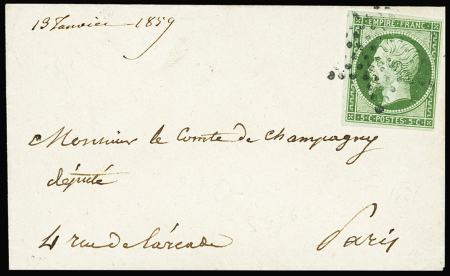 13 Janvier 1859
EMPIRE FRANC
5 C POSTES 5 C
Monsieur le Comte de Champagny
député
4 rue de l'arcade
Paris